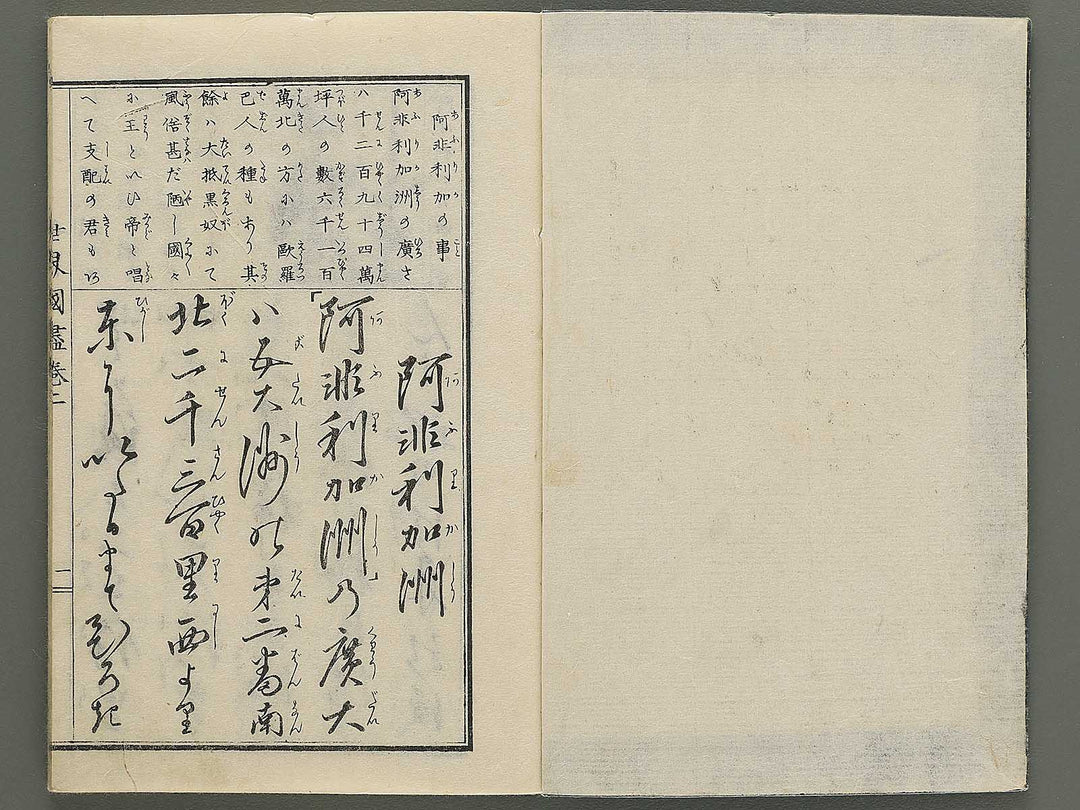 阿非利加の事
阿非利加洲の廣さ
八千二百九十四萬
坪人の數六千一百
萬北の方ハ歐羅
巴人の種もあり其
餘ハ大抵黒奴にて
風俗甚だ陋し國々
に王といひ帝と唱
へて支配の君もあ
阿非利加洲
「阿非利加洲」乃廣大
ハ五大洲の第二番南
北二千三百里西より
東にいたるまてひろき
世界國盡卷二
一